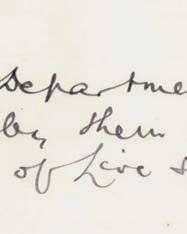 Departme
by them
of Live S